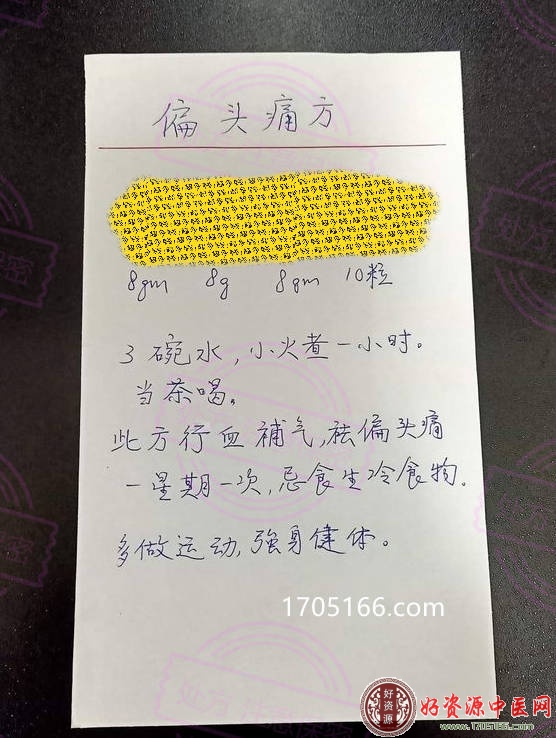 偏头痛方
8gm 8g 8gm 10粒
3碗水,小火煮一小时。
当茶喝。
此方行血補气,祛偏头痛
一星期一次,忌食生冷食物。
多做运动,強身健体。
1705166.com
好资源
好资源中医网
www.1705166.com